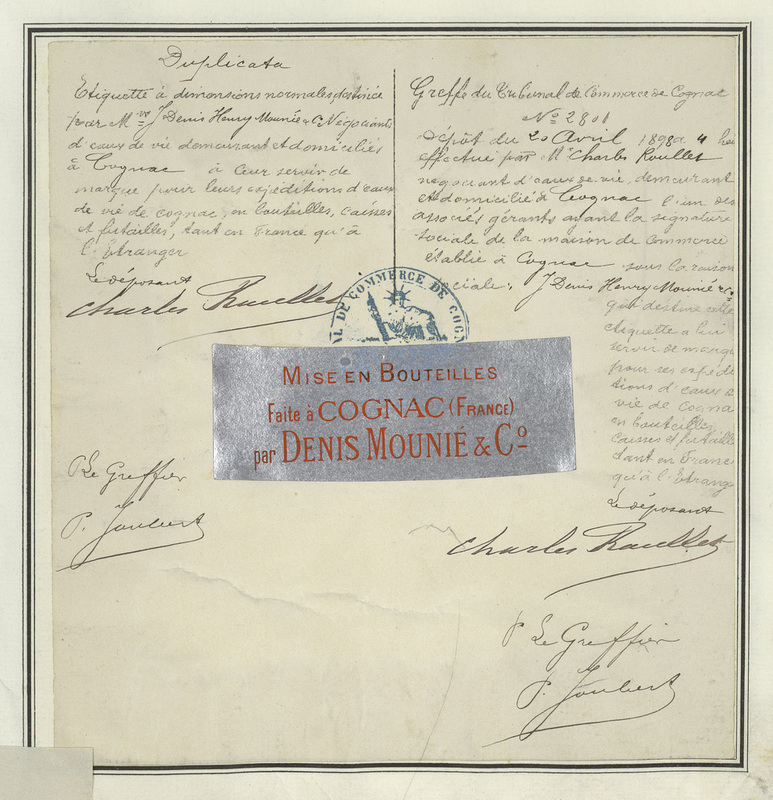 Duplicata
Etiquette à dimensions normales, destinée
pour Mrs J Denis Henry Mounié & C Négociants
d'eaux de vie demeurant et domiciliés
à Cognac à leur servir de
marque pour leurs expéditions d'eaux
de vie de cognac, en bouteilles, caisses
et futailles, tant en France qu'à
l'étranger
Le déposant
Charles Roullet
P Le Greffier
P. Joubert
Greffe du Tribunal de Commerce de Cognac
No 2801
Dépôt du 20 Avril 1898 4
effectué par Mr Charles Roullet
négociant d'eaux de vie, demeurant
et domicilié à Cognac l'un des
associés gérants ayant la signature
sociale de la maison de commerce
établie à Cognac sous la raison
sociale: J Denis Henry Mounié & Co
qui destine cette
étiquette à lui
servir de marqu
pour ses expédi
tions d'eaux d
vie de cogna
en bouteilles
caisses et futaille
tant en Franc
qu'à l'étrange
Le déposant
Charles Roullet
P Le Greffier
P. Joubert
AL DE COMMERCE DE COGN
MISE EN BOUTEILLES
Faite à COGNAC (FRANCE)
par DENIS MOUNIÉ & Co